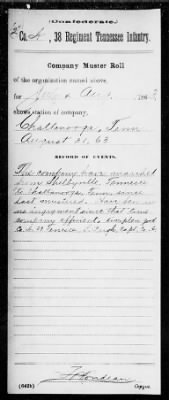 (Confederate)
Co. A, 38 Regiment Tennessee Infantry.
Company Muster Roll
of the organization named above,
for July & Aug, 1863,
shows station of company,
Chattanooga, Tenn
August 31, 63
RECORD OF EVENTS.
The company have marched
from Shelbyville, Tennessee
to Chattanooga, Tenn since
last mustered. Have been in
no engagement since that time
company
Copyist.